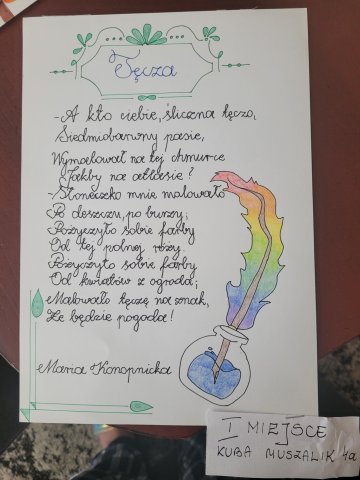 Tęcza
-A kto ciebie, śliczna tęczo,
Siedmiobarwny pasie,
Wymalował na tej chmurce
Jakby na atłasie?
-Słoneczko mnie malowało
Po deszczu, po burzy;
Pożyczyło sobie farby
Od tej polnej róży.
Pożyczyło sobie farby
Od kwiatów z ogroda;
Malowało tęczę na znak,
Że będzie pogoda!
Maria Konopnicka
I MIEJSCE
KUBA MUSZALIK 1a